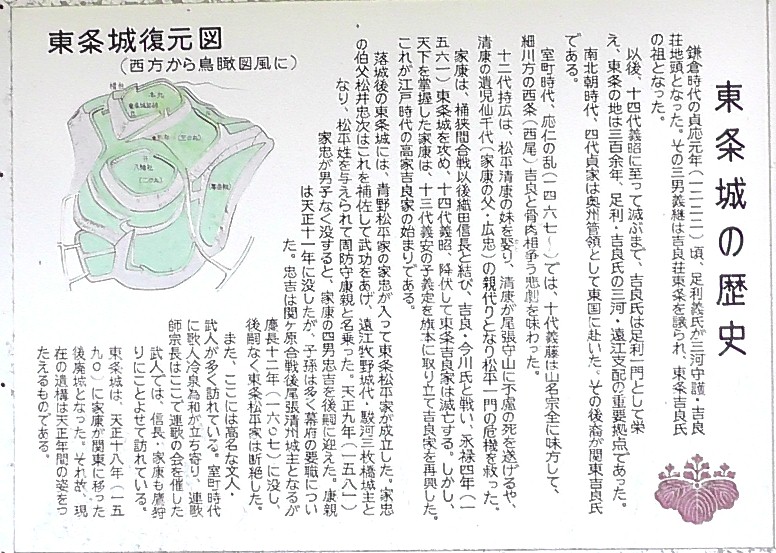 東条城の歴史
鎌倉時代の貞応元年(一二二二)頃、足利義氏が三河守護・吉良
荘地頭となった。その三男義継は吉良荘東条を譲られ、東条吉良氏
の祖となった。
以後、十四代義昭に至って滅ぶまで、吉良氏は足利一門として栄
え、東条の地は三百余年、足利・吉良氏の三河・遠江支配の重要拠点であった。
南北朝時代、四代貞家は奥州管領として東国に赴いた。その後裔が関東吉良氏
である。
室町時代、応仁の乱(一四六七~)では、十代義藤は山名宗全に味方して、
細川方の西条(西尾)吉良と骨肉相争う悲劇を味わった。
十二代持広は、松平清康の妹を娶り、清康が尾張守山に不慮の死を遂げるや、
清康の遺児仙千代(家康の父・広忠)の親代りとなり松平一門の危機を救った。
家康は、桶狭間合戦以後織田信長と結び、吉良・今川氏と戦い、永禄四年(一
五六一)東条城を攻め、十四代義昭、降伏して東条吉良家は滅亡する。しかし、
天下を掌握した家康は、十三代義安の子義定を旗本に取り立て吉良家を再興した。
これが江戸時代の高家吉良家の始まりである。
落城後の東条城には、青野松平家の家忠が入って東条松平家が成立した。家忠
の伯父松井忠次はこれを補佐して武功をあげ、遠江牧野城代・駿河三枚橋城主と
なり、松平姓を与えられて周防守康親と名乗った。天正九年(一五八一)
家忠が男子なく没すると、家康の四男忠吉を後嗣に迎えた。康親
は天正十一年に没したが、子孫は多く幕府の要職につい
た。忠吉は関ヶ原合戦後尾張清州城主となるが
慶長十二年(一六〇七)に没し、
後嗣なく東条松平家は断絶した。
また、ここには高名な文人・
武人が多く訪れている。室町時代
に歌人冷泉為和が立ち寄り、連歌
師宗長はここで連歌の会を催した
武人では、信長・家康も鷹狩
りにことよせて訪れている。
東条城は、天正十八年(一五
九〇)に家康が関東に移った
後廃城となった。それ故、現
在の遺構は天正年間の姿をつ
たえるものである。
東条城復元図
(西方から鳥瞰図風に)
本丸
八幡社
(二の丸)